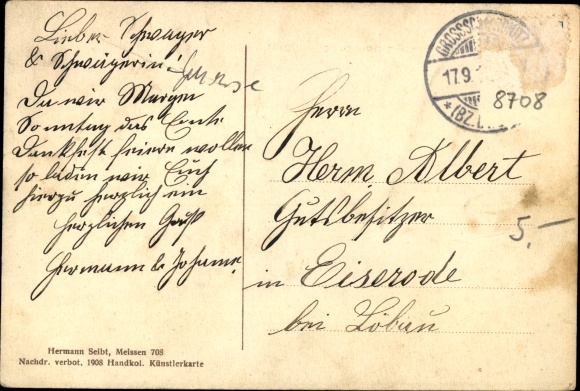 Lieber Schwager
& Schwägerin!
Da wir Morgen
Sonntag das Ernte
Dankfest feiern wollen
so laden wir Euch
hierzu herzlich ein
Herzlichen Gruß
Hermann & Johanne.
Hermann Seibt, Meissen 708
Nachdr. verbot. 1908 Handkol. Künstlerkarte
17.9.
(BZ.
8708
Herrn
Herm. Albert
Gutsbesitzer
5.-
in Eiserode
bei Löbau